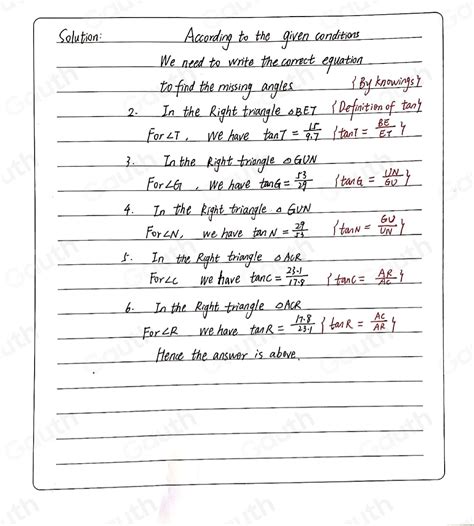 Solution: According to the given conditions
We need to write the correct equation
to find the missing angles {By knowings}
2. In the Right triangle △BET {Definition of tan}
For∠T, we have tanT = 15/9.7 {tanT = BE/ET}
3. In the Right triangle △GUN
For∠G, We have tanG = 53/29 {tanG = UN/GU}
4. In the Right triangle △ GUN
For∠N, we have tanN = 29/53 {tanN = GU/UN}
5. In the Right triangle △ACR
For∠c we have tanc = 23.1/17.8 {tanC = AR/AC}
6. In the Right triangle △ACR
For∠R we have tanR = 17.8/23.1 {tanR = AC/AR}
Hence the answer is above.